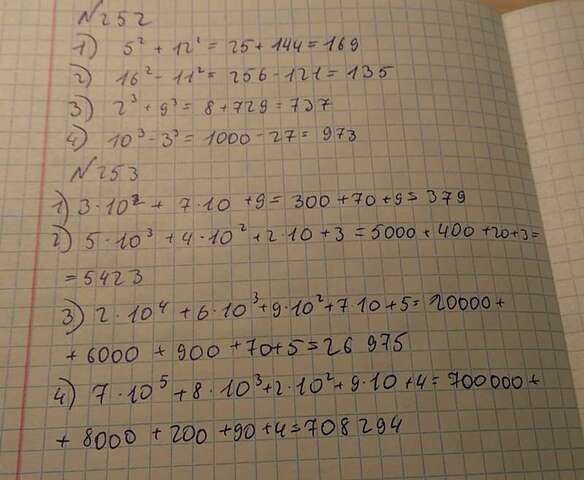 N252
1) 5² + 12² = 25 + 144 = 169
2) 16² - 11² = 256 - 121 = 135
3) 2³ + 9³ = 8 + 729 = 737
4) 10³ - 3³ = 1000 - 27 = 973
N253
1) 3·10² + 7·10 + 9 = 300 + 70 + 9 = 379
2) 5·10³ + 4·10² + 2·10 + 3 = 5000 + 400 + 20 + 3 =
= 5423
3) 2·10⁴ + 6·10³ + 9·10² + 7·10 + 5 = 20000 +
+ 6000 + 900 + 70 + 5 = 26 975
4) 7·10⁵ + 8·10³ + 2·10² + 9·10 + 4 = 700000 +
+ 8000 + 200 + 90 + 4 = 708 294